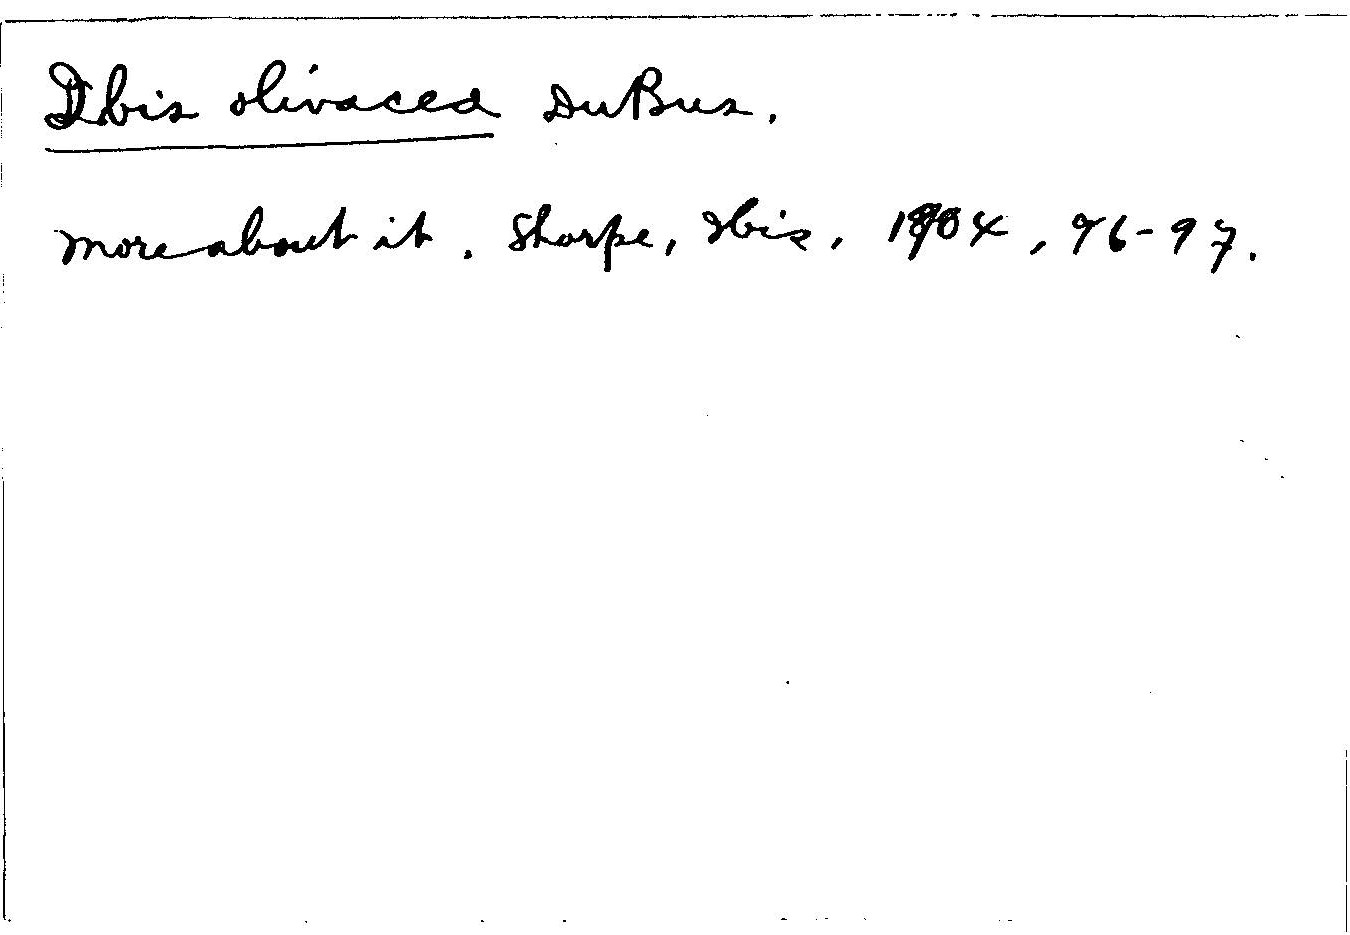 Ibis olivacea DuBus.
More about it. Sharpe, Ibis, 1904, 96-97.